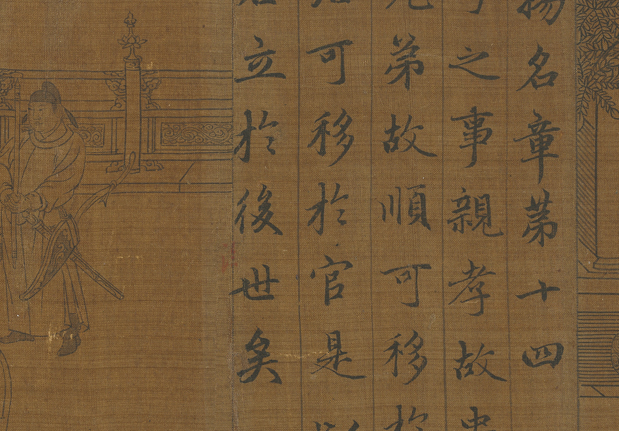 揚名章第十四
子之事親孝故忠
兄弟故順可移於
治可移於官是以
名立於後世矣